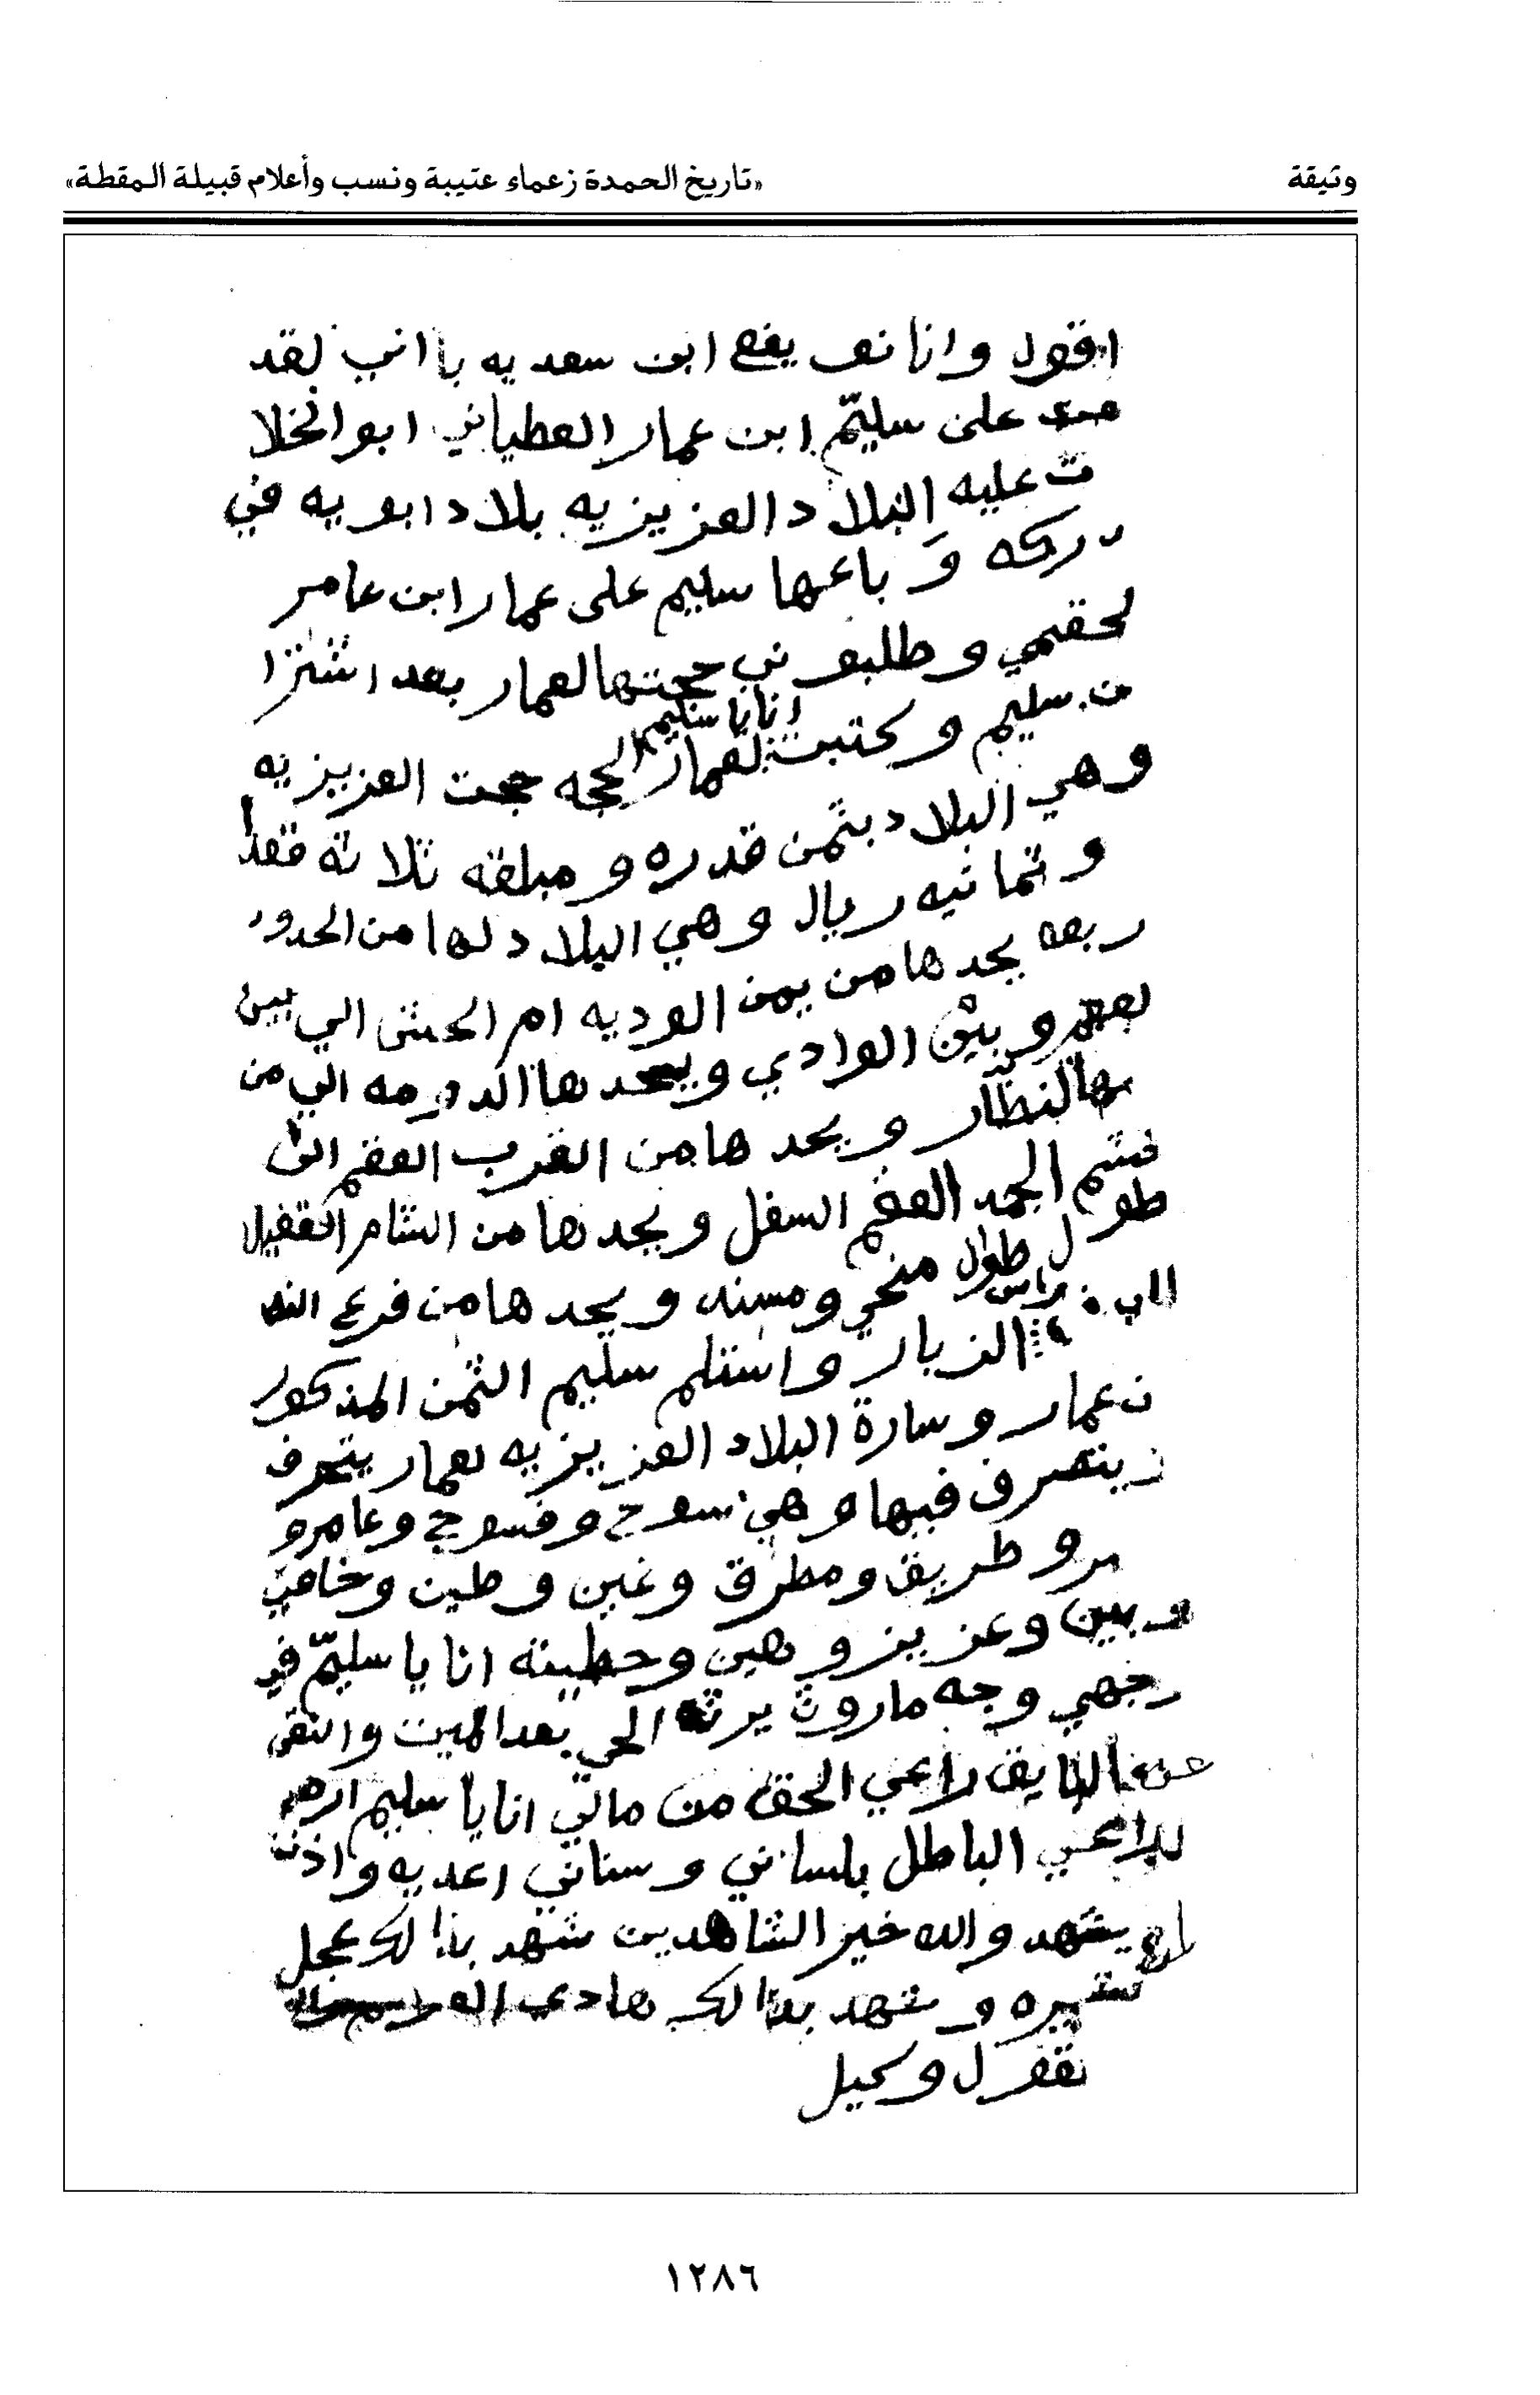 وثيقة
«تاريخ الحمدة زعماء عتيبة ونسب وأعلام قبيلة المقطة»
اقول وانا نوير يفع ابن سعديه با اني لقد
على سليم ابن عمار العطياني ابو انخلا
ت عليه البلاد العزيزيه بلاد ابويه في
دركه و باعها سليم على عمار ابن عامر
لحقني وطلبوني حجتها لعمار بعد اشترا
من سليم وكتبت لعمار الحجه حجت العزيزيه
انا يا سليم
وهي البلاد بثمن قدره ومبلقه ثلاثة فقط
و ثمانيه ريال وهي البلاد لها من الحدود
ربعه يحدها من يمن الوديه ام الحشى الي بين
وبين الوادي ويحدها الدورمه الي من
النظار ويحدها من الغرب العقم الى
قسم الجمد العقم السفل ويحدها من الشام
طول طول منحي ومسند ويحدها من فرع
الي راس
الزبار واستلم سليم الثمن المذكور
ن عمار وسارة البلاد العزيزيه لعمار يتعرف
ويتصرف فيها وهي سوح وفسوح وعامر و
مر و طريق ومطرق وغين وطين وخافي
وبين وعزيز وهين وحطيته انا يا سليم في
وجهي وجه ماروث يرثه الحي بعد الميت والنقى
راعي الحق من مالي انا يا سليم
الباطل بلساني وسناني اعديه واذنت
يشهد والله خير الشاهدين شهد بذالك عجل
وشهد بذالك هادي
نقول وكيل
١٢٨٦